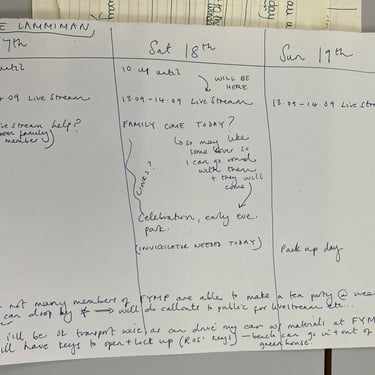 E LAMMIMAN)
7th
Sat 18th
Sun 19th
until
10 up until
WILL BE
HERE
.09 Live Stream
13.09 - 14.09 Live Stream
13.09 - 14.09 Live Str
stream help?
family
member
FAMILY COME TODAY?
so may like
some so
I can go round
with them
+ they will
come
LINKS?
Celebration, early eve.
park.
(INVIGILATOR NEEDED TODAY)
Pack up day
not many members of FYMP are able to make a tea party @ wee
can drop by will do callouts to public for livestream etc...
i'll be ok transport wise as can drive my car w/ materials at FYM
ill have keys to open + lock up (ROS' keys) - can go in + out of
greenhouse.